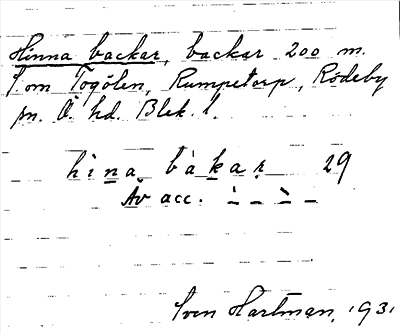 Hinna backar, backar 200 m.
S. om Togölen, Rumpetorp, Rödeby
sn. Ö. hd. Blek. l.
hìna bàkar 29
Av acc. ̀ – ̀ –
Sven Hartman, 1931